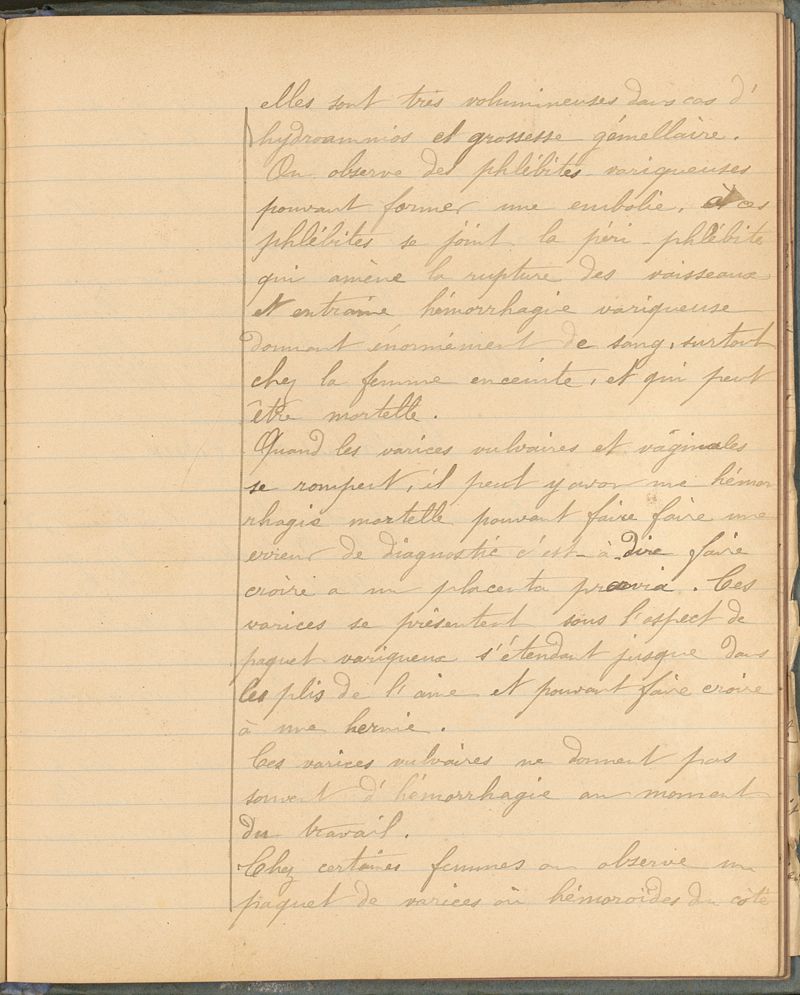 elles sont très volumineuses dans cas d'
hydroamnios et grossesse gémellaire.
On observe des phlébites variqueuses
pouvant former une embolie, à ces
phlébites se joint la péri-phlébite
qui amène la rupture des vaisseaux
et entraine hémorrhagie variqueuse
donnant énormément de sang, surtout
chez la femme enceinte, et qui peut
être mortelle.
Quand les varices vulvaires et vâginales
se rompent, il peut y avoir une hémor
rhagie mortelle pouvant faire faire une
erreur de diagnostic c'est-à-dire faire
croire a un placenta prævia. Ces
varices se présentent sous l'aspect de
paquet variqueux s'étendant jusque dans
les plis de l'aine et pouvant faire croire
à une hernie.
Ces varices vulvaires ne donnent pas
souvent d'hémorrhagie au moment
du travail.
Chez certaines femmes on observe un
paquet de varices où hémoroïdes du côté